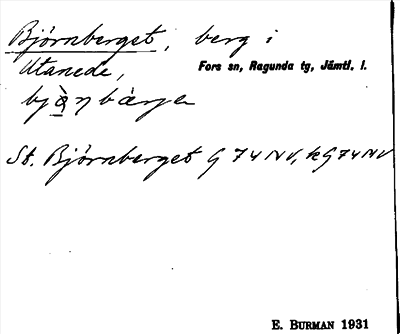 Björnberget, berg i
Utanede,
Fors sn, Ragunda tg, Jämtl. l.
St. Björnberget G 74 NV, kG 74 NV
E. BURMAN 1931